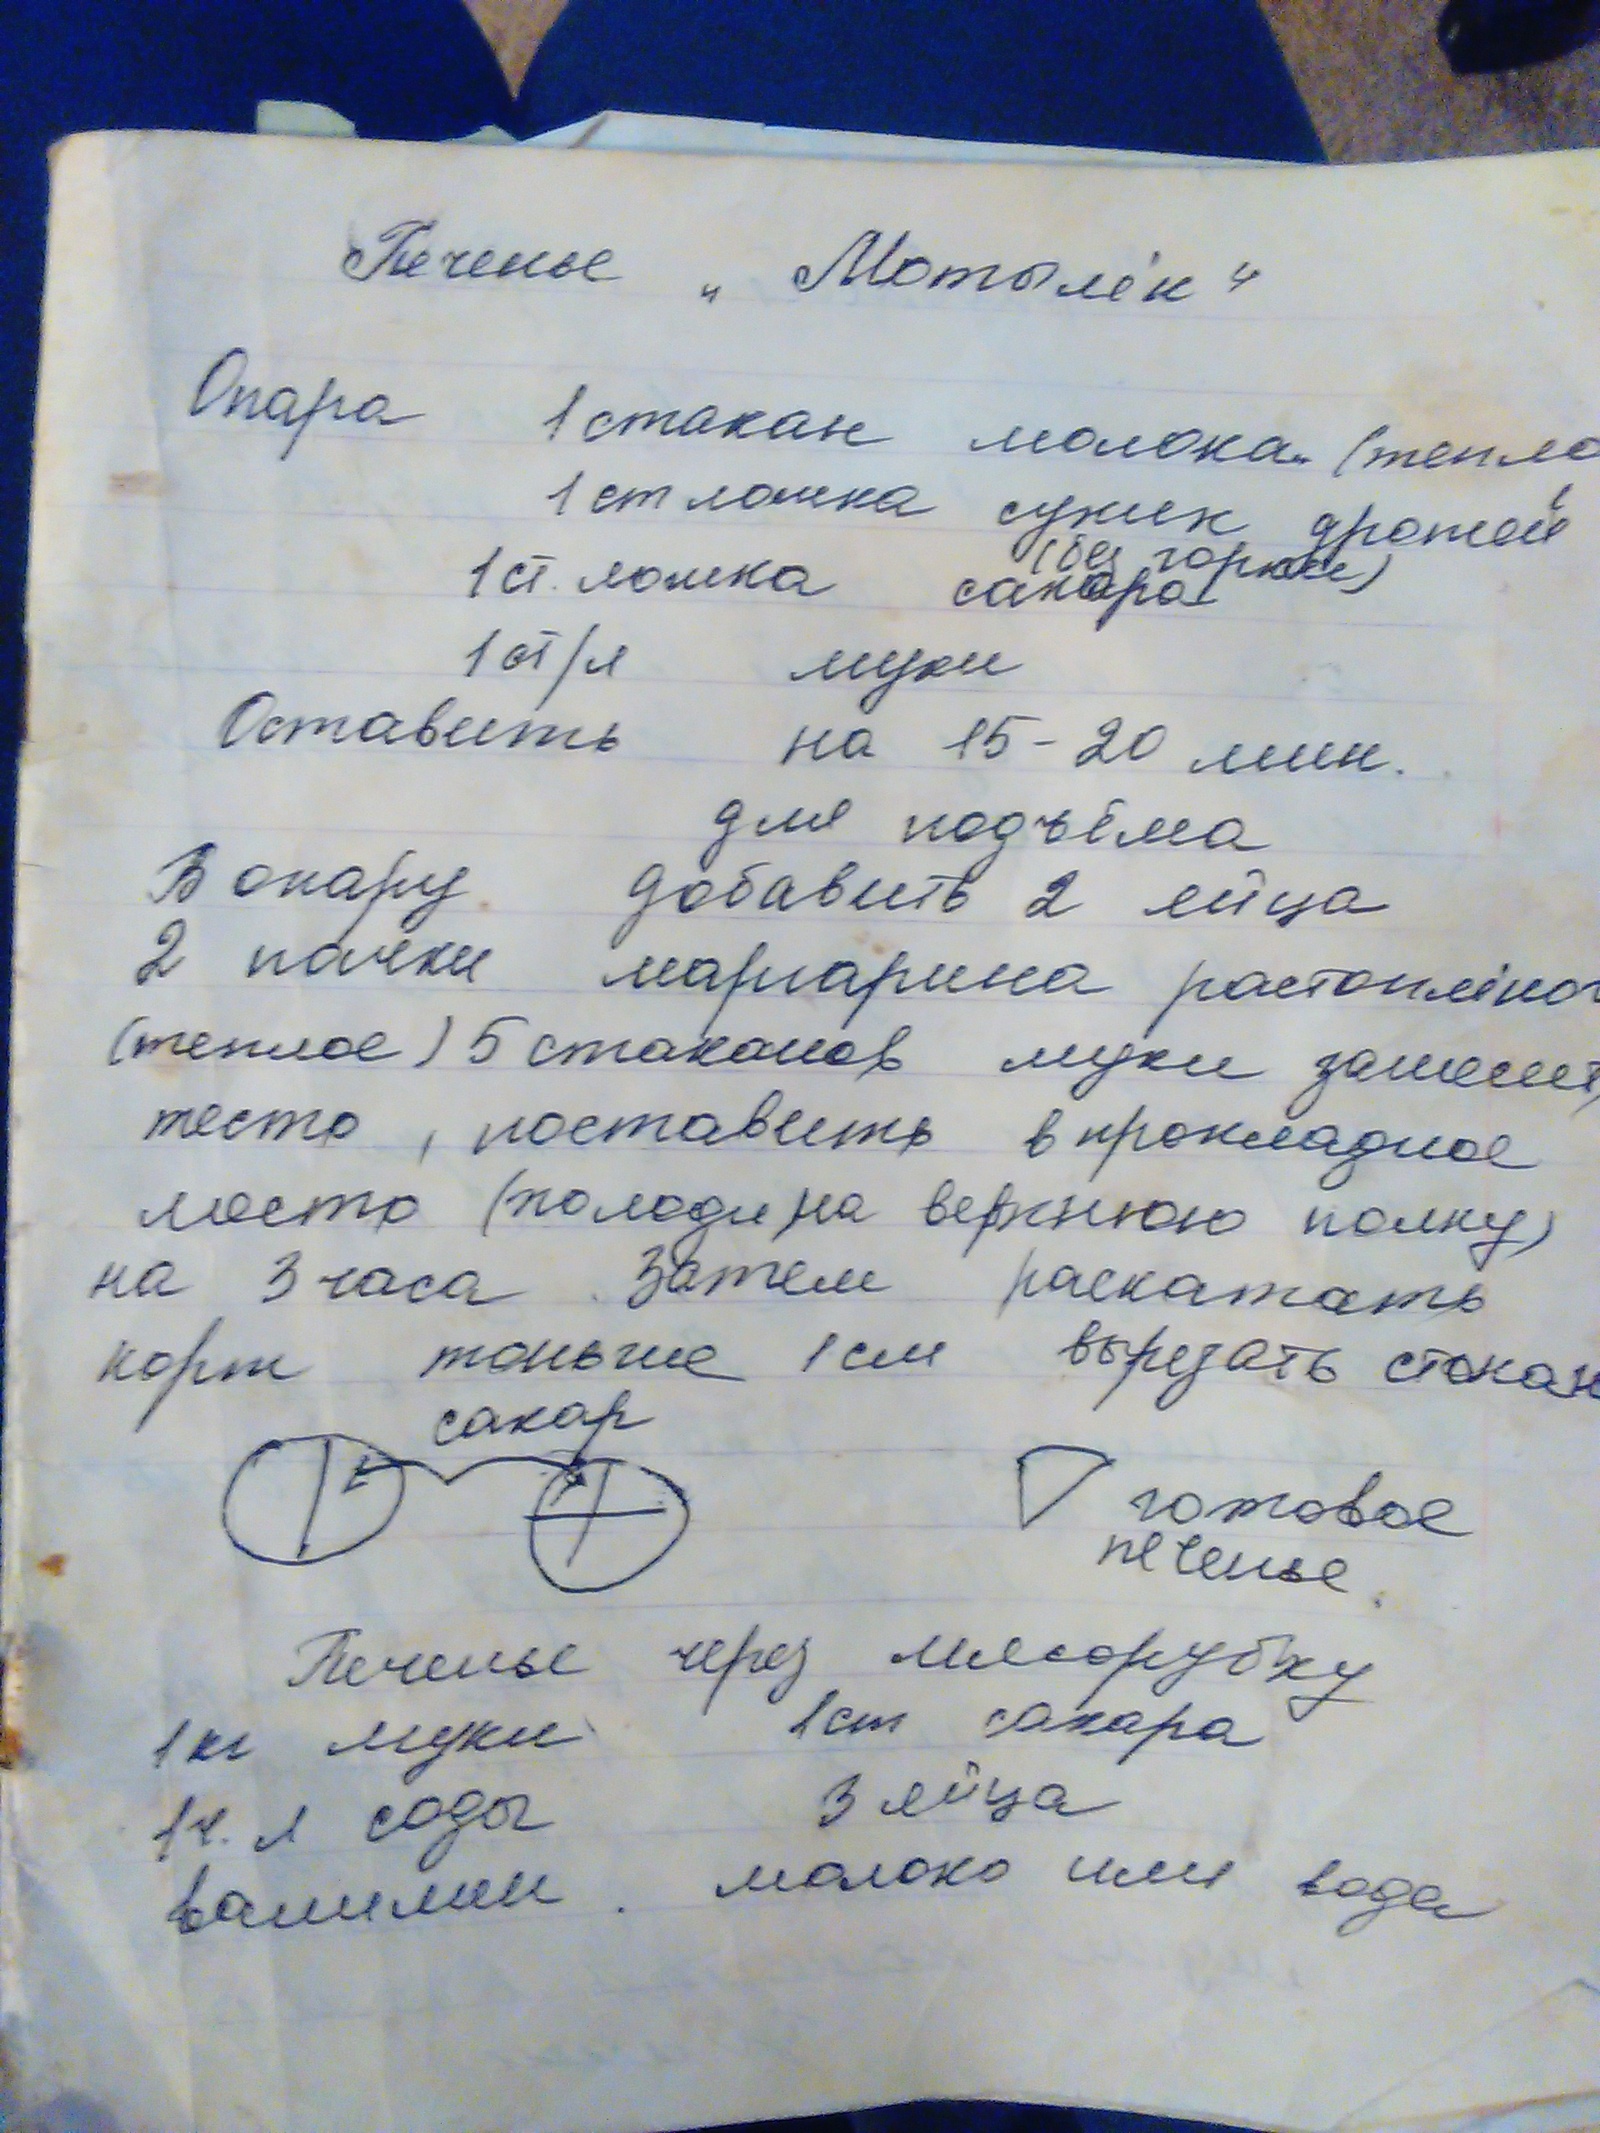 Печенье „Мотылёк“
Опара 1 стакан молока (тепло
1 ст ложка сухих дрожей
(без горки)
1 ст. ложка сахара
1 ст/л муки
Оставить на 15-20 мин.
для подъёма
В опару добавить 2 яйца
2 пачки маргарина растоплёног
(теплое) 5 стаканов муки замесить
тесто, поставить в прохладное
место (холоди) на верхнюю полку)
на 3 часа. Затем раскатать
корж тоньше 1 см вырезать стакан
сахар
готовое
печенье.
Печенье через мясорубку
1 кг муки 1 ст сахара
1 ч. л соды 3 яйца
ванилин. молоко или вода